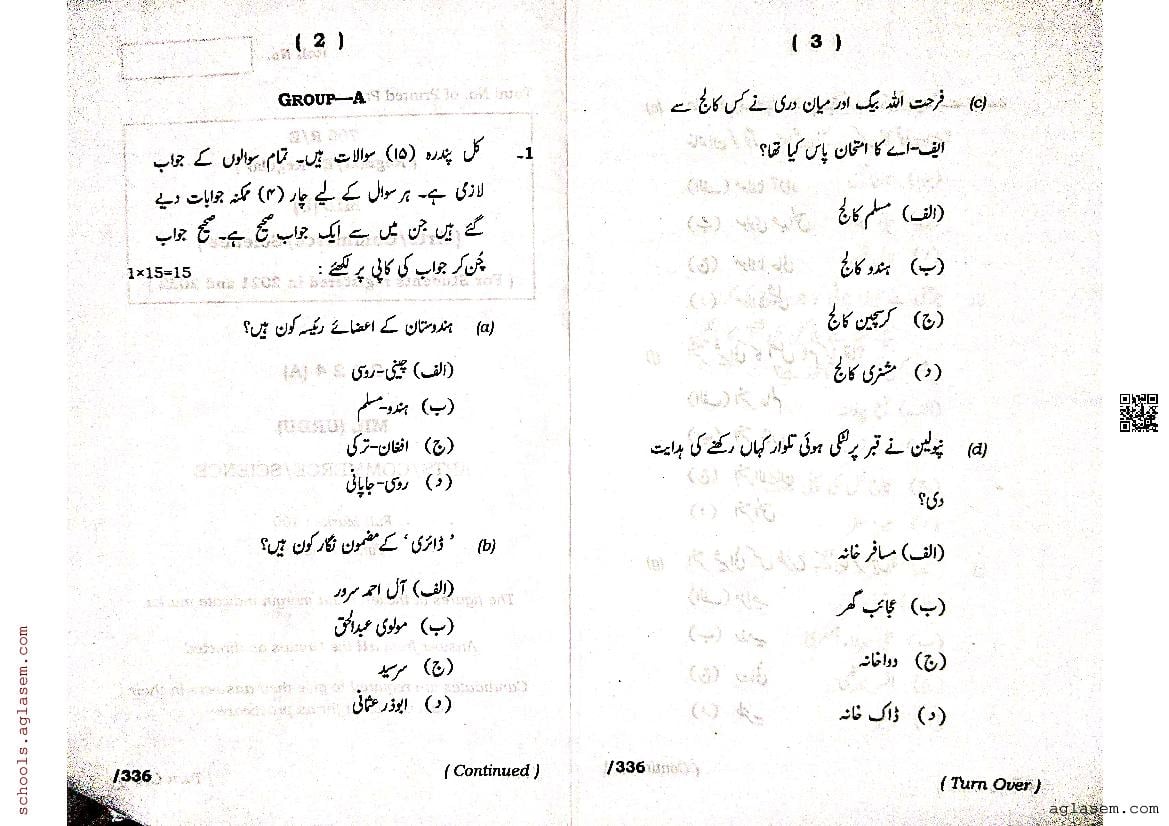 ( 2 )
GROUP—A
1- کل پندرہ (۱۵) سوالات ہیں۔ تمام سوالوں کے جواب
لازمی ہے۔ ہر سوال کے لیے چار (۴) ممکنہ جوابات دیے
گئے ہیں جن میں سے ایک جواب صحیح ہے۔ صحیح جواب
چُن کر جواب کی کاپی پر لکھئے : 1×15=15
(a) ہندوستان کے اعضائے رئیسہ کون ہیں؟
(الف) چینی-روسی
(ب) ہندو-مسلم
(ج) افغان-ترکی
(د) روسی-جاپانی
(b) ’ ڈائری ‘ کے مضمون نگار کون ہیں؟
(الف) آل احمد سرور
(ب) مولوی عبدالحق
(ج) سرسید
(د) ابوذر عثمانی
/336
( Continued )
( 3 )
(c) فرحت اللہ بیگ اور میاں دری نے کس کالج سے
ایف-اے کا امتحان پاس کیا تھا؟
(الف) مسلم کالج
(ب) ہندو کالج
(ج) کرسچین کالج
(د) مشنری کالج
(d) نپولین نے قبر پر لٹکی ہوئی تلوار کہاں رکھنے کی ہدایت
دی؟
(الف) مسافر خانہ
(ب) عجائب گھر
(ج) دواخانہ
(د) ڈاک خانہ
/336
( Turn Over )
schools.aglasem.com
aglasem.com